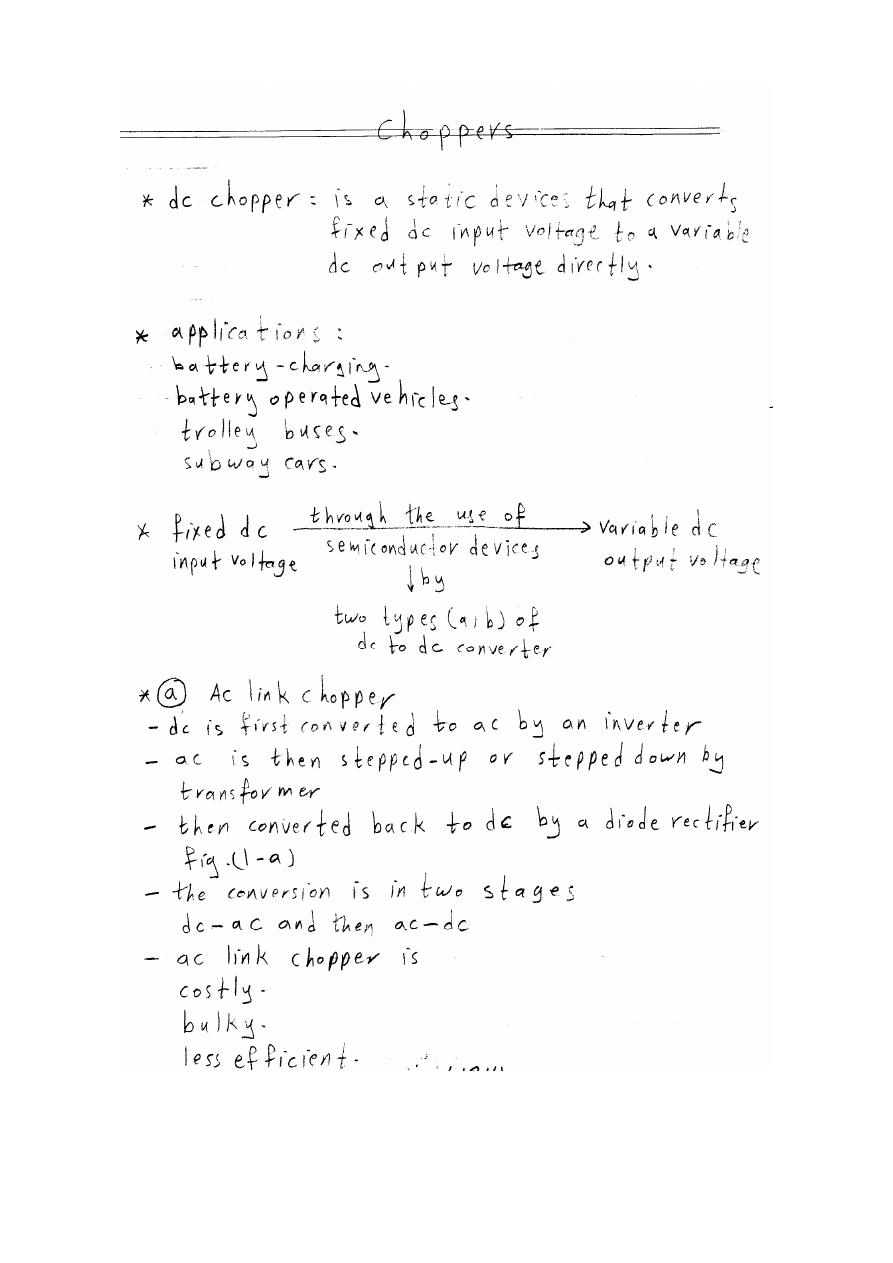 Choppers
* dc chopper : is a static devices that converts
fixed dc input voltage to a variable
dc output voltage directly.
* applications :
battery-charging.
battery operated vehicles.
trolley buses.
subway cars.
* fixed dc through the use of → variable dc
input voltage semiconductor devices output voltage
↓ by
two types (a,b) of
dc to dc converter
* (a) Ac link chopper
- dc is first converted to ac by an inverter
- ac is then stepped-up or stepped down by
transformer
- then converted back to dc by a diode rectifier
fig.(1-a)
- the conversion is in two stages
dc-ac and then ac-dc
- ac link chopper is
costly.
bulky.
less efficient.